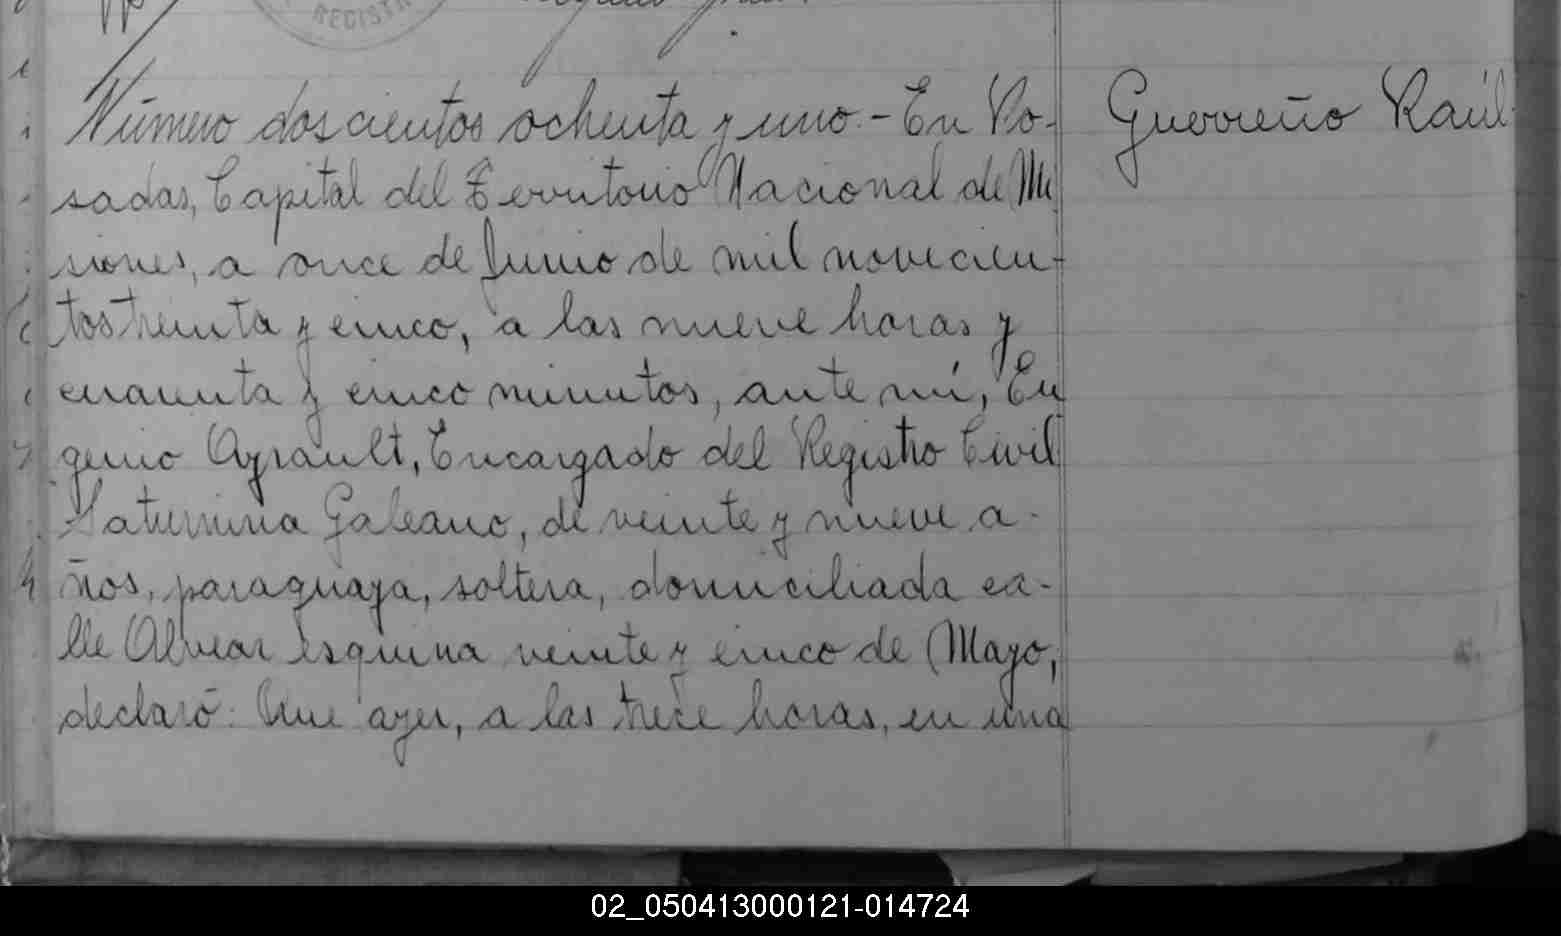 REGISTR
Número doscientos ochenta y uno.- En Po-
sadas, Capital del Territorio Nacional de Mi
siones, a once de Junio de mil novecien-
tos treinta y cinco, a las nueve horas y
cuarenta y cinco minutos, ante mí, Eu
genio Ayrault, Encargado del Registro Civil
Saturnina Galeano, de veinte y nueve a-
ños, paraguaya, soltera, domiciliada ca-
lle Alvear esquina veinte y cinco de Mayo,
declaró: Que ayer, a las trece horas, en una
Guerreño Raúl
02_050413000121-014724